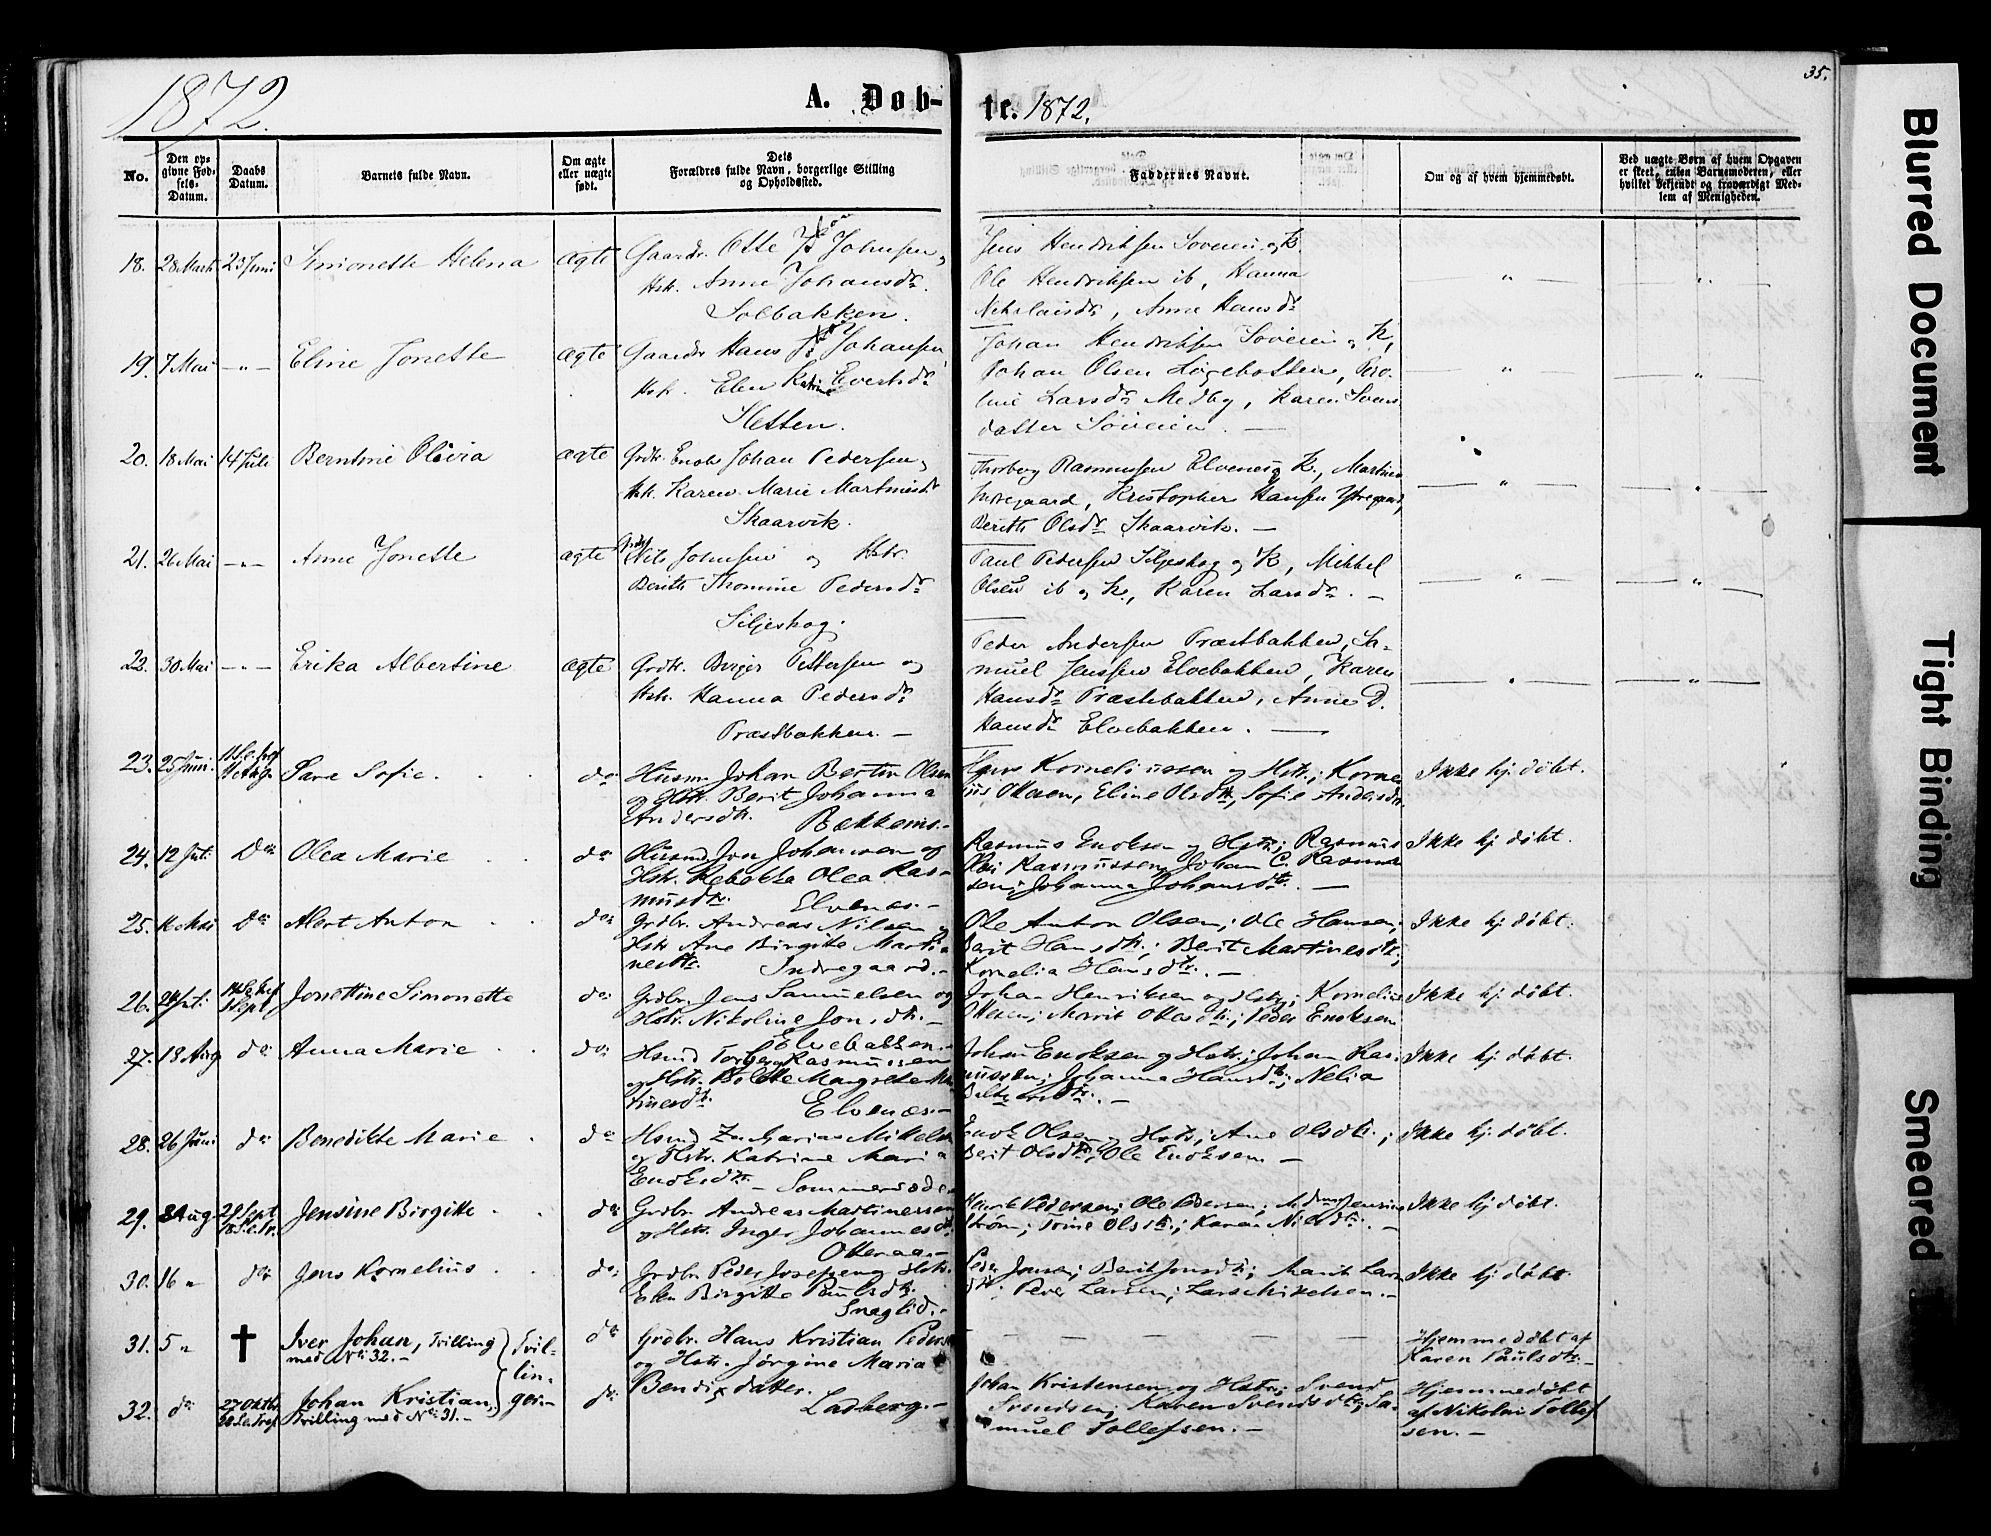 1872.
A. Døb-
te. 1872.
35.
No.
Den op-
givne Fød-
sels-
Datum.
Daabs
Datum.
Barnets fulde Navn.
Om ægte
eller uægte
født.
Dets
Forældres fulde Navn, borgerlige Stilling
og Opholdssted.
Faddernes Navne.
Om og af hvem hjemmedøbt.
Ved uægte Børn af hvem Opgaven
er skeet, enten Barnemoderen, eller
hvilket bekjendt og troværdigt Med-
lem af Menigheden.
18. 28 Marts 23 Juni Simonette Helena ægte Gaardbr. Otte Johnsen,
Hstr. Anne Johansdr.
Solbakken.
Jens Hendriksen Søveien og K
Ole Hendriksen ib, Hanna
Nikolaisdr, Anne Hansdr
19. 7 Mai -"- Eline Jonette ægte Gaardbr Hans Johansen
Hstr. Elen Katrine Evertsdr
Sletten.
Johan Hendriksen Søveien og K,
Johan Olsen Løgebotten, Pero-
line Larsdr Medby, Karen Svens
datter Søveien.
20. 18 Mai 14 Juli Berntine Olivia ægte Grdbr. Enok Johan Pedersen,
Hstr. Karen Marie Martinusdr
Skaarvik.
Thorberg Rasmussen Elvenes og K., Martinus
Indregaard, Kristopher Hansen Ytregaard,
Berith Olsdr Skaarvik. —
21. 26 Mai -"- Anne Jonette ægte Grdbr Nils Johnsen og Hstr.
Berith Thomine Pedersdr
Siljeshog.
Paul Pedersen Siljeshog og K, Mikkel
Olsen ib og K., Karen Larsdr. —
22. 30 Mai -"- Erika Albertine ægte Grdbr. Birger Pettersen og
Hstr. Hanna Pedersdr
Præstbakken. —
Peder Andersen Præstbakken, Sa-
muel Jenssen Elvebakken, Karen
Hansdr Præstebakken, Anne D.
Hansdr Elvebakken.
23. 25 Juni. 11 S. e. Tref
11 Aug. Sara Sofie. do Husm. Johan Bertin Olsen
og Hstr. Berit Johanna
Andersdtr. Bækkems. —
Hans Korneliussen og Hstr.; Korne-
lius Ottesen, Eline Olsdtr, Sofie Andersdtr.
Ikke hj. døbt.
24. 12 Juli Do Olea Marie do Husmd. Jon Johansen og
Hstr. Rebekka Olea Ras-
musdtr. Elvenes. —
Rasmus Enoksen og Hstr; Rasmus
Rasmussen, Johan C. Rasmus-
sen; Johanna Johansdtr. —
Ikke hj. døbt.
25. Do Albert Anton do Grdbr. Andreas Nilsen og
Hstr Ane Birgite Marti-
nesdtr. Indregaard. —
Ole Anton Olsen; Ole Hansen;
Berit Hansdtr.; Berit Martinesdtr;
Kornelia Hansdtr. —
Ikke hj. døbt.
26. 24 Juli 14 S. e. Tref
1 Sept Jonettine Simonette do Grdbr. Jens Samuelsen og
Hstr. Nikoline Jonsdtr. —
Elvebakken. —
Johan Henriksen og Hstr; Kornelius
Ottesen; Marit Ottesdtr.; Peder Enoksen
Ikke hj. døbt.
27. 18 Aug do Anna Marie do Hsmd Torberg Rasmussen
og Hstr. Bolette Margrete Mar-
tinesdtr. Elvenæs. —
Johan Enoksen og Hstr.; Johan Ras-
mussen; Johanna Hansdtr; Nelia
Ikke hj. døbt.
28. 26 Juni do Benedikte Marie do Hsmd Zacharias Mikelsen
og Hstr. Katrine Maria
Enoksdtr — Sommersæde.
Enok Olsen og Hstr; Ane Olsdtr.;
Berit Olsdtr; Ole Enoksen —
Ikke hj. døbt.
29. Aug 29 Sept
18 S. e. Tr. Jensine Birgitte do Grdbr Andreas Martinessen
og Hstr. Inger Johannesdtr
Otteraa. —
Henrik Pedersen; Ole Pedersen; Jensine
Strøm; Trine Olsdtr.; Karen Nilsdtr. —
Ikke hj. døbt.
30. 16 " do Jens Kornelius do Grdbr Peder Josefsen og Hstr.
Elen Birgitte Paulsdtr.
Snaglid. —
Peder Jonsen; Berit Jonsdtr; Marit Lars-
dtr; Peder Larsen; Lars Mikelsen. —
Ikke hj. døbt.
31. 5 " † Iver Johan, Tvilling
med No 32. —
do Grdbr. Hans Kristian Peders
og Hstr. Jørgine Maria
Bendixdatter.
Ladberg. —
Hjemmedøbt af
Karen Paulsdtr. —
Tvil-
lin-
ger. —
32. do 27 Oktbr.
22 S. e. Tref Johan Kristian,
Tvilling med No 31. —
do
Johan Kristensen og Hstr; Svend
Svendsen; Karen Svendsdtr; Sa-
muel Tollefsen. —
Hjemmedøbt
af Nikolai Tollef
sen. —
Blurred Document
Tight Binding
Smeared